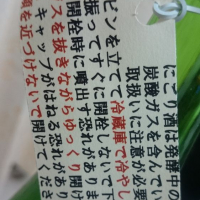 にごり酒は発酵中の
炭酸ガスを含んでい
取扱いに注意が必要
ビンを立てて冷蔵庫で冷やし
振ってすぐに開栓しないで下
開栓時に噴出す恐れがありま
スを抜きながらゆっくり開け
キャップがはねる恐れがあり
顔を近づけないで開けてくださ